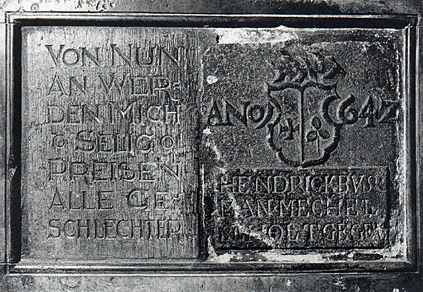 VON NUN
AN WER=
DEN MICH
SELIG
PREISEN
ALLE GE=
SCHLECHTER
ANO 1642
HENDRICK BVS
MAN MECHEL